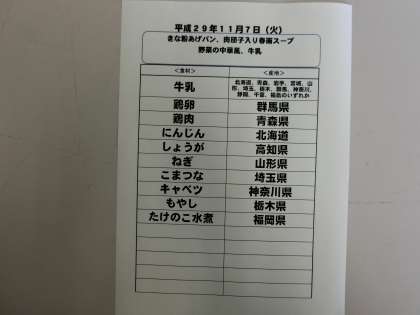 平成29年11月7日（火）
きな粉あげパン、肉団子入り春雨スープ
野菜の中華風、牛乳
＜食材＞ ＜産地＞
牛乳 北海道、青森、岩手、宮城、山
形、埼玉、栃木、群馬、神奈川、
静岡、千葉、福島のいずれか
鶏卵 群馬県
鶏肉 青森県
にんじん 北海道
しょうが 高知県
ねぎ 山形県
こまつな 埼玉県
キャベツ 神奈川県
もやし 栃木県
たけのこ水煮 福岡県